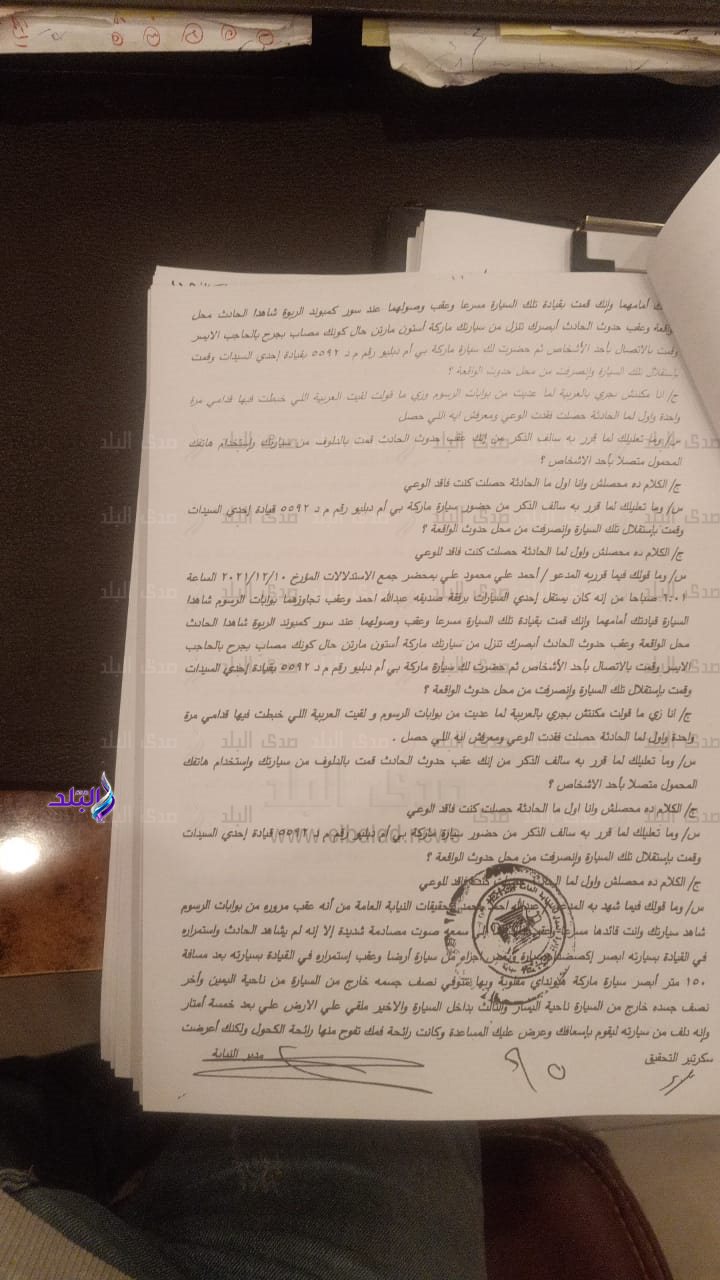 أمامهما وإنك قمت بقيادة تلك السيارة مسرعا وعقب وصولهما عند سور كمبوند الربوة شاهدا الحادث محل
وعقب حدوث الحادث أبصرك تنزل من سيارتك ماركة أستون مارتن حال كونك مصاب بجرح بالحاجب الايسر
وقمت بالاتصال بأحد الأشخاص ثم حضرت لك سيارة ماركة بي أم دبليو رقم م د ٥٥٩٢ بقيادة إحدي السيدات وقمت
بإستقلال تلك السيارة وإنصرفت من محل حدوث الواقعة ؟
ج/ انا مكنتش بجري بالعربية لما عديت من بوابات الرسوم وزي ما قولت لقيت العربية اللي خبطت فيها قدامي مرة
واحدة واول لما الحادثة حصلت فقدت الوعي ومعرفش ايه اللي حصل
س/ وما تعليلك لما قرر به سالف الذكر من إنك عقب حدوث الحادث قمت بالدلوف من سيارتك وإستخدام هاتفك
المحمول متصلا بأحد الاشخاص ؟
ج/ الكلام ده محصلش وانا اول ما الحادثة حصلت كنت فاقد الوعي
س/ وما تعليلك لما قرر به سالف الذكر من حضور سيارة ماركة بي أم دبليو رقم م د ٥٥٩٢ قيادة إحدي السيدات
وقمت بإستقلال تلك السيارة وإنصرفت من محل حدوث الواقعة ؟
ج/ الكلام ده محصلش واول لما الحادثة حصلت كنت فاقد للوعي
س/ وما قولك فيما قرربه المدعو / أحمد علي محمود علي بمحضر جمع الاستدلالات المؤرخ ٢٠٢١/١٢/١٠ الساعة
٦:٠١ صباحا من إنه كان يستقل إحدي السيارات برفقة صديقه عبدالله احمد وعقب تجاوزهما بوابات الرسوم شاهدا
السيارة قيادتك أمامهما وإنك قمت بقيادة تلك السيارة مسرعا وعقب وصولهما عند سور كمبوند الربوة شاهدا الحادث
محل الواقعة وعقب حدوث الحادث أبصرك تنزل من سيارتك ماركة أستون مارتن حال كونك مصاب بجرح بالحاجب
الايسر وقمت بالاتصال بأحد الأشخاص ثم حضرت لك سيارة ماركة بي أم دبليو رقم م د ٥٥٩٢ بقيادة إحدي السيدات
وقمت بإستقلال تلك السيارة وإنصرفت من محل حدوث الواقعة ؟
ج/ انا زي ما قولت مكنتش بجري بالعربية لما عديت من بوابات الرسوم و لقيت العربية اللي خبطت فيها قدامي مرة
واحدة واول لما الحادثة حصلت فقدت الوعي ومعرفش ايه اللي حصل .
س/ وما تعليلك لما قرر به سالف الذكر من إنك عقب حدوث الحادث قمت بالدلوف من سيارتك وإستخدام هاتفك
المحمول متصلا بأحد الاشخاص ؟
ج/ الكلام ده محصلش وانا اول ما الحادثة حصلت كنت فاقد الوعي
س/ وما تعليلك لما قرر به سالف الذكر من حضور سيارة ماركة بي أم دبليو رقم م د ٥٥٩٢ قيادة إحدي السيدات
وقمت بإستقلال تلك السيارة وإنصرفت من محل حدوث الواقعة ؟
ج/ الكلام ده محصلش واول لما الحادثة حصلت كنت فاقد للوعي
س/ وما قولك فيما شهد به عبدالله احمد محمد بتحقيقات النيابة العامة من أنه عقب مروره من بوابات الرسوم
شاهد سيارتك وانت قائدها سمعه صوت مصادمة شديدة إلا إنه لم يشاهد الحادث واستمراره
في القيادة بسيارته ابصر أجزاء من سيارة أرضا وعقب إستمراره في القيادة بسيارته بعد مسافة
١٥٠ متر أبصر سيارة ماركة هيونداي مقلوبة وبها متوفي نصف جسمه خارج من السيارة من ناحية اليمين وأخر
نصف جسده خارج من السيارة ناحية اليسار والثالث بداخل السيارة والاخير ملقي علي الارض علي بعد خمسة أمتار
وإنه دلف من سيارته ليقوم بإسعافك وعرض عليك المساعدة وكانت رائحة فمك تفوح منها رائحة الكحول ولكنك أعرضت
سكرتير التحقيق
مدير النيابة
البلد
صدى البلد
www.elbalad.news